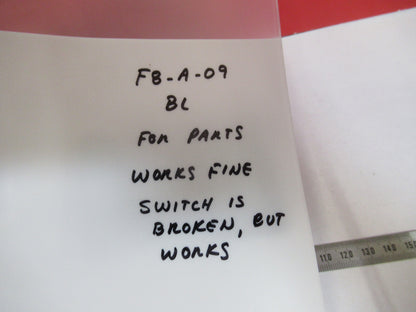 F8-A-09
BL
FOR PARTS
WORKS FINE
SWITCH IS
BROKEN, BUT
WORKS
110 120 130 140 150